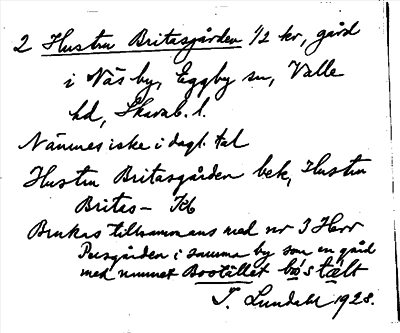 2 Hustru Britasgården 1/2 kr, gård
i Näs by, Eggby sn, Valle
hd, Skarab. l.
Nämnes icke i dagl. tal
Hustru Britasgården bek, Hustru
Britas– Kb
Brukas tillsammans med nr 3 Herr
Persgården i samma by som en gård
med namnet Bostället bo's tält
T. Lundahl 1928.